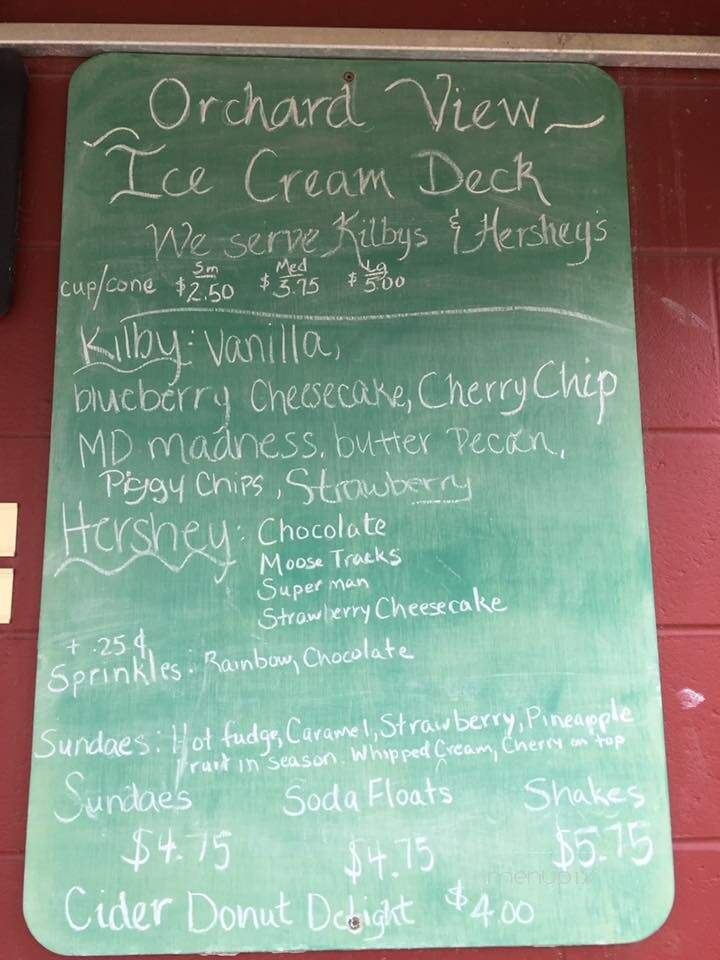 Orchard View
Ice Cream Deck
We serve Kilbys & Hershey's
Sm Med Lg
cup/cone $2.50 $3.75 $5.00
Kilby: Vanilla,
blueberry Cheesecake, Cherry Chip
MD madness, butter Pecan,
Piggy Chips, Strawberry
Hershey: Chocolate
Moose Tracks
Super man
Strawberry Cheesecake
+ .25¢
Sprinkles: Rainbow, Chocolate
Sundaes: Hot fudge, Caramel, Strawberry, Pineapple
Fruit in Season. Whipped Cream, Cherry on top
Sundaes Soda Floats Shakes
$4.75 $4.75 $5.75
menupix
Cider Donut Delight $4.00